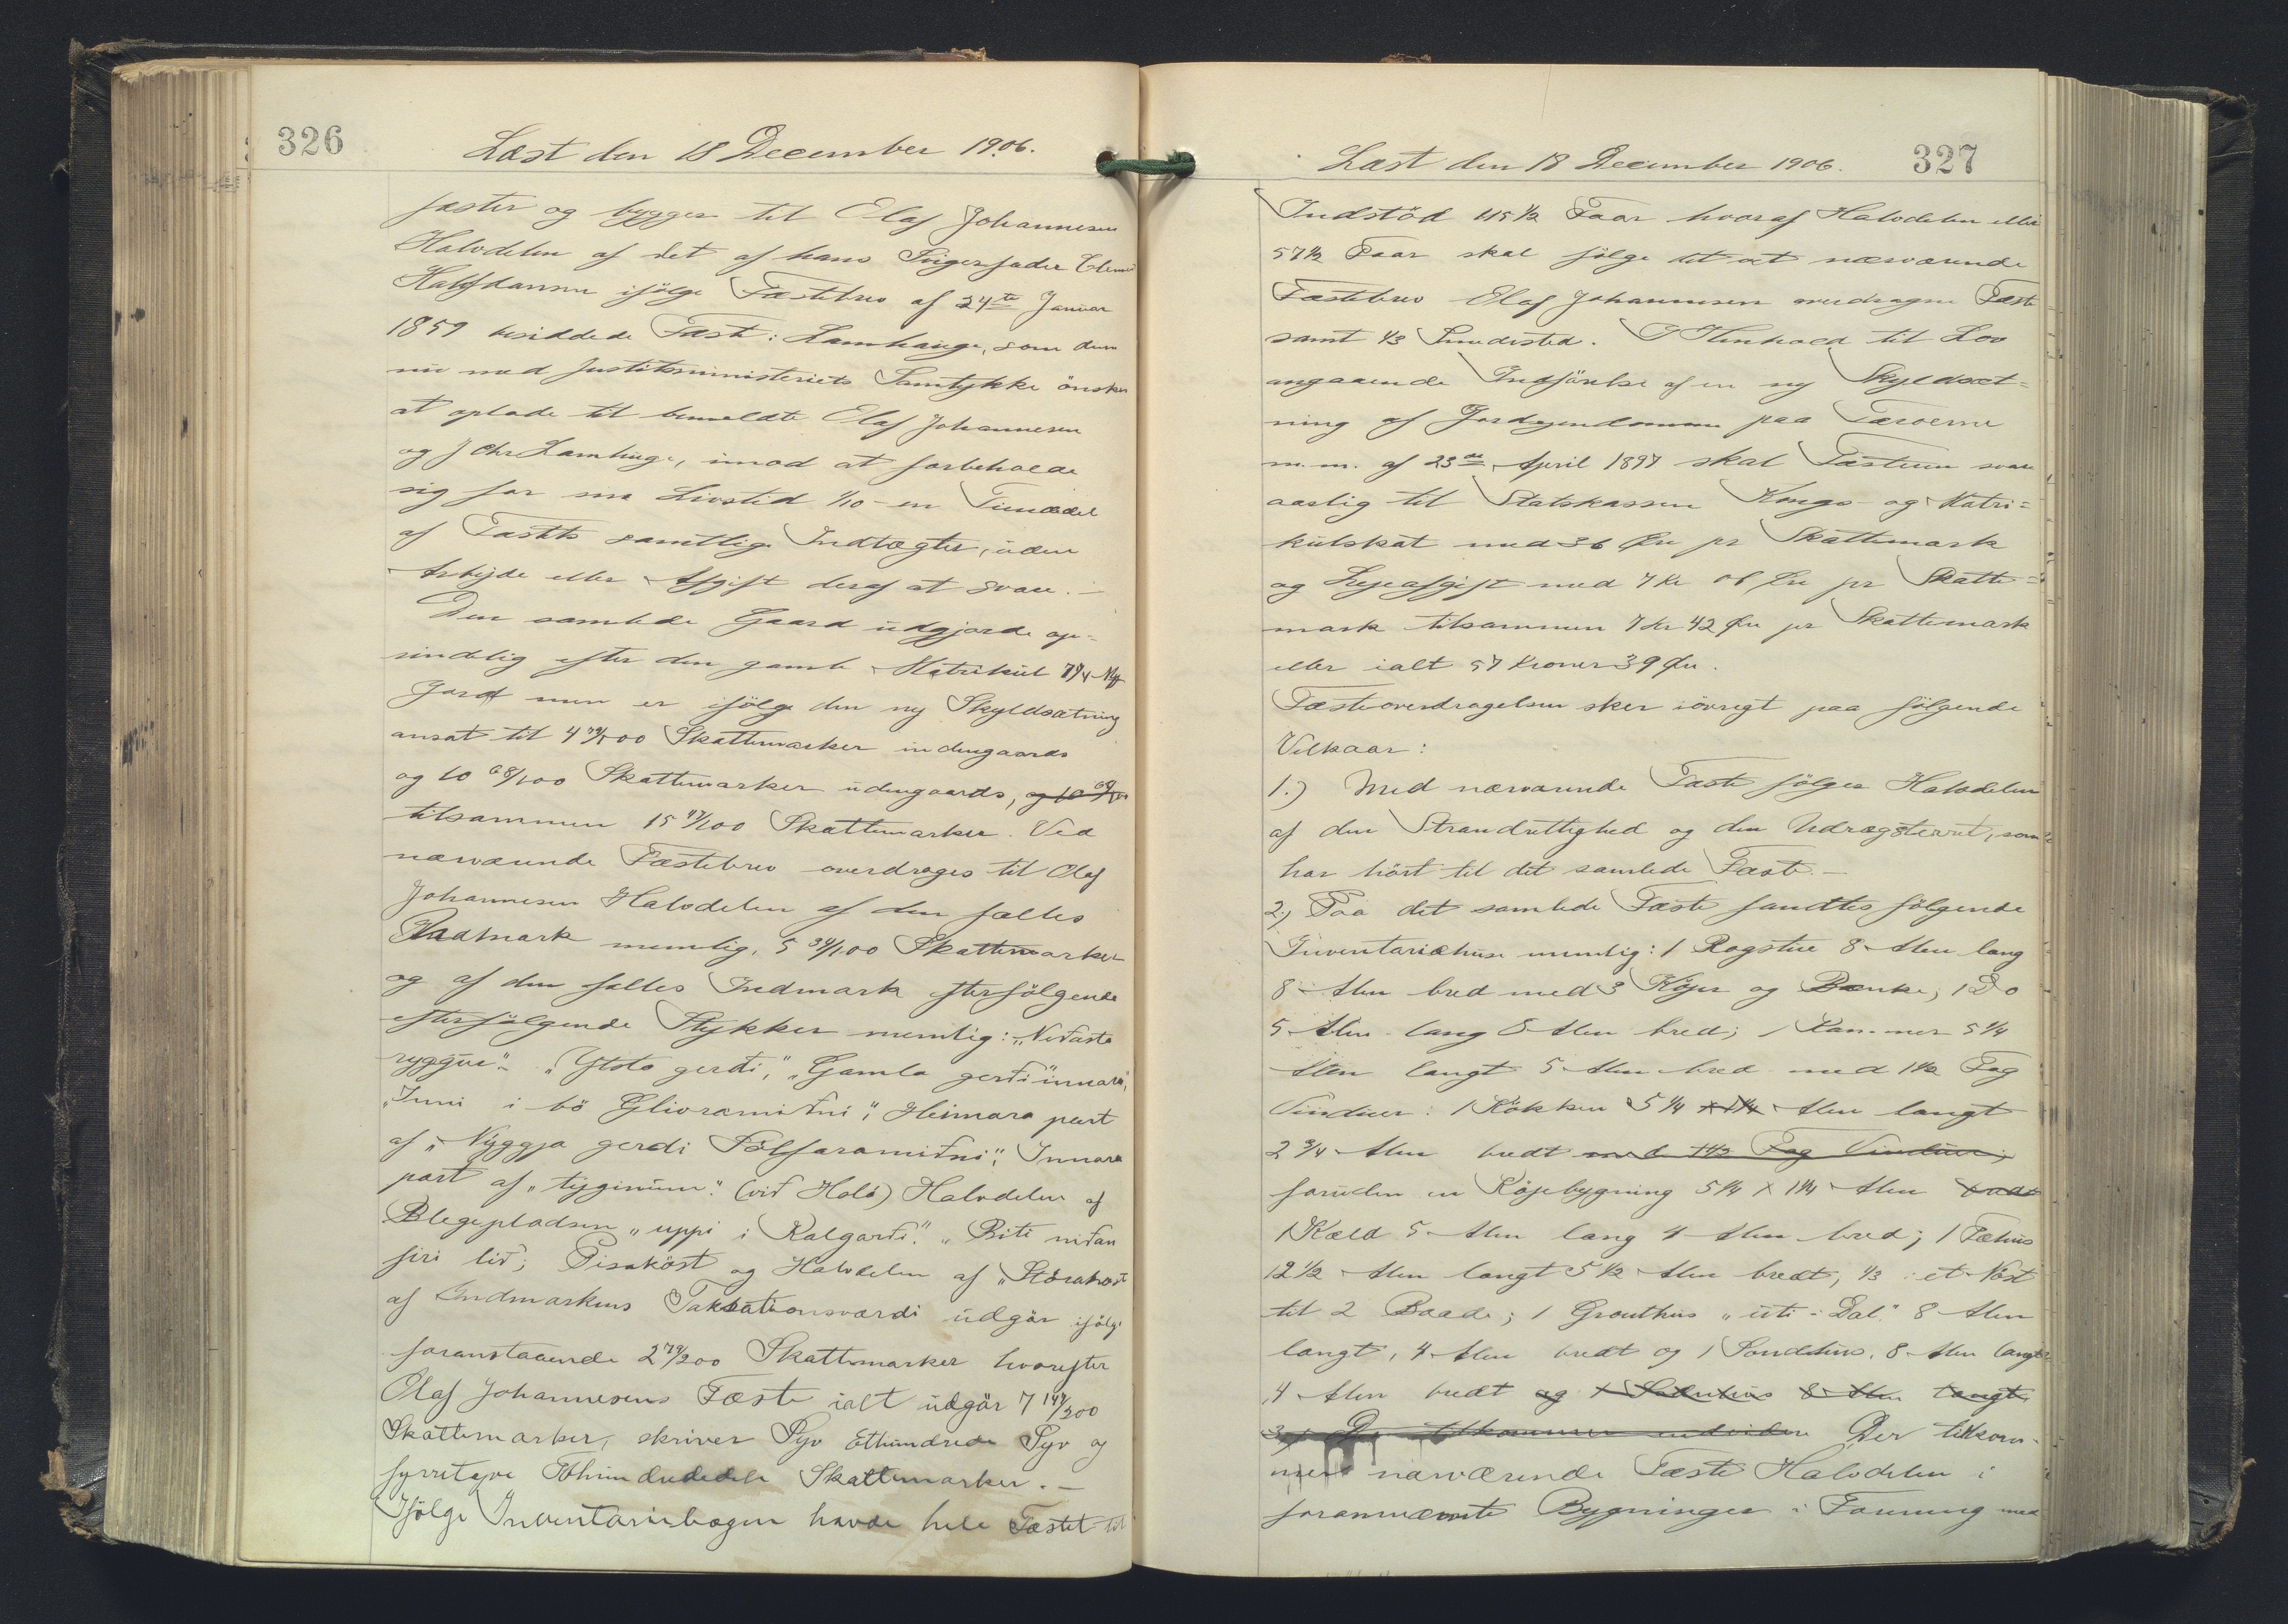 326
Læst den 18 December 1906.
fæster og bygger til Olaf Johannesen
Halvdelen af det af hans Svigerfader Clemen
Halfdansen ifølge Fæstebrev af 24de Januar
1859 besiddede Fæste: Lamhauge, som denne
nu med Justitsministeriets Samtykke ønsker
at oplade til bemeldte Olaf Johannesen
og J Chr Lamhuge, imod at forbeholde
sig for sin Livstid 1/10 - en Tiendedel
af Fæstets samtlige Indtægter, uden
Arbejde eller Afgift deraf at svare. -
Den samlede Gaard udgjorde op-
rindelig efter den gamle Matrikul 7¾ Mk
Jord men er ifølge den ny Skyldsætning
ansat til 4 79/100 Skattemarker indengaards
og 10 68/100 Skattemarker udengaards, og 10 68/100
tilsammen 15 47/100 Skattemarker. Ved
nærværende Fæstebrev overdrages til Olaf
Johannesen Halvdelen af den fælles
Hadmark nemlig, 5 34/100 Skattemarker
og af den fælles Indmark efterfølgende
efterfølgende Stykker nemlig: "Niðasta
ryggur" "Ytsta gerði", "Gamla gerði innara",
"Inni i bö Glivramiðni", Heimara part
af "Nyggja gerdi Fölfaramiðni", Innara
part af "tyginum" (við Hola) Halvdelen af
Blegepladsen "uppi i Kalgarði". "Biti niðan
firi lið; Pisaköst og Halvdelen af "Störaköst
af Indmarkens Taksationsværdi udgør ifølge
foranstaaende 2 79/200 Skattemarker hvorefter
Olaf Johannesens Fæste ialt udgør 7 147/200
Skattemarker, skriver Syv Ethundrede Syv og
fyrretyve Tohundrededele Skattemarker. -
Ifølge Inventariebogen havde hele Fæstet til
Læst den 18 December 1906.
327
Indstöd 115 ½ Faar hvoraf Halvdelen eller
57½ Faar skal følge det ved nærværende
Fæstebrev Olaf Johannesen overdragne Fæste
samt 1/3 Smedested. I Henhold til Lov
angaaende Indførelse af en ny Skyldsæt=
ning af Jordejendomme paa Færoerne
m.m. af 23de April 1897 skal Fæsteren svare
aarlig til Statskassen Konge- og Matri=
kulskat med 36 Øre pr Skattemark
og Lejeafgift med 7 Kr 06 Øre pr Skatte=
mark tilsammen 7 Kr 42 Øre pr Skattemark
eller ialt 57 Kroner 39 Øre.
Fæsteoverdragelsen sker iøvrigt paa følgende
Vilkaar:
1.) Med nærværende Fæste følger Halvdelen
af den Strandrettighed og den Udrægsterret, som
har hört til det samlede Fæste. -
2.) Paa det samlede Fæste fandtes følgende
Inventariehuse nemlig: 1 Rogstue 8 Alen lang
8 Alen bred med 3 Køjer og Bænke; 1 Do
5 Alen lang 5 Alen bred; 1 Kammer 5 ¼
Alen langt 5 Alen bred med 1½ Fag
Vinduer: 1 Kökken 5 ¼ x 1¼ Alen langt
2 ¾ Alen bredt med 1½ Fag Vinduer;
foruden en Köjebygning 5¼ x 1¼ Alen bredt
1 Kæld 5 Alen lang 4 Alen bred; 1 Fæhus
12 ½ Alen langt 5 ½ Alen bredt, 1/3 i et Nöst
til 2 Baade; 1 Grouthus "uti i Dal" 8 Alen
langt, 4 Alen bredt og 1 Sondehus, 8 Alen langt
4 Alen bredt og 1 Sodnhus 8 Alen langt
3.) Der tilkommer endvidere Der tilkom-
mer nærværende Fæste Halvdelen i
forannævnte Bygninger i Forening med